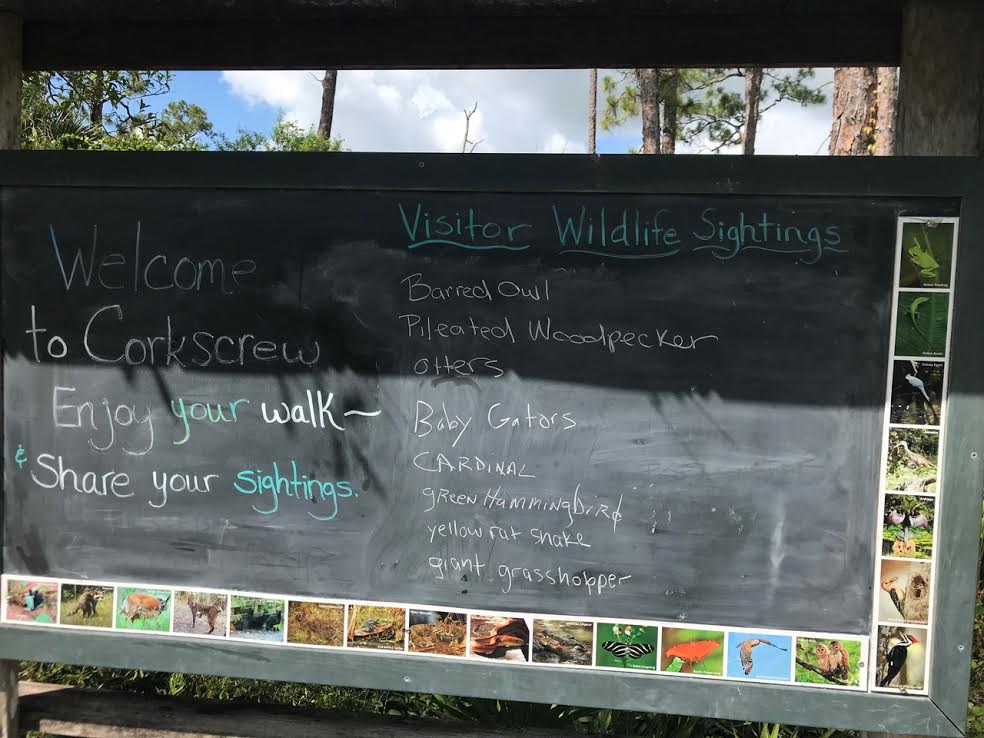 Welcome
to Corkscrew
Enjoy your walk~
& Share your sightings.
Visitor Wildlife Sightings
Barred Owl
Pileated Woodpecker
otters
Baby Gators
CARDINAL
greenHammingbird
yellow rat snake
giant grasshopper